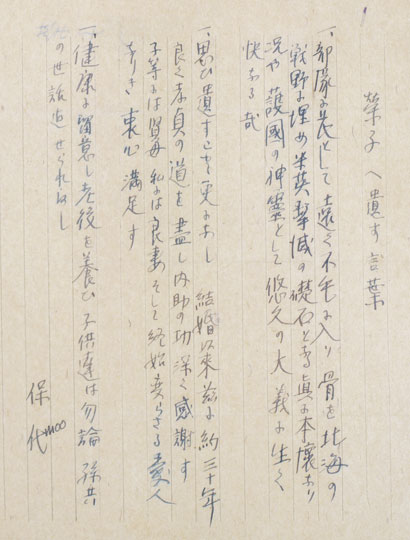 榮子へ遺す言葉
一、部隊の長として遠く不毛に入り骨を北海の
戦野に埋め米英撃滅の礎石となる真に本懐なり
況や護國の神霊として悠久の大義に生く
快なる哉
一、思ひ遺すこと更になし 結婚以来茲に約三十年
良く孝貞の道を盡し内助の功深く感謝す
子等には賢母 私には良妻そして終始変らざる愛人
なりき 衷心満足す
一、健康に留意し老後を養ひ 子供達は勿論 孫共
の世話迄せられ度し
保代